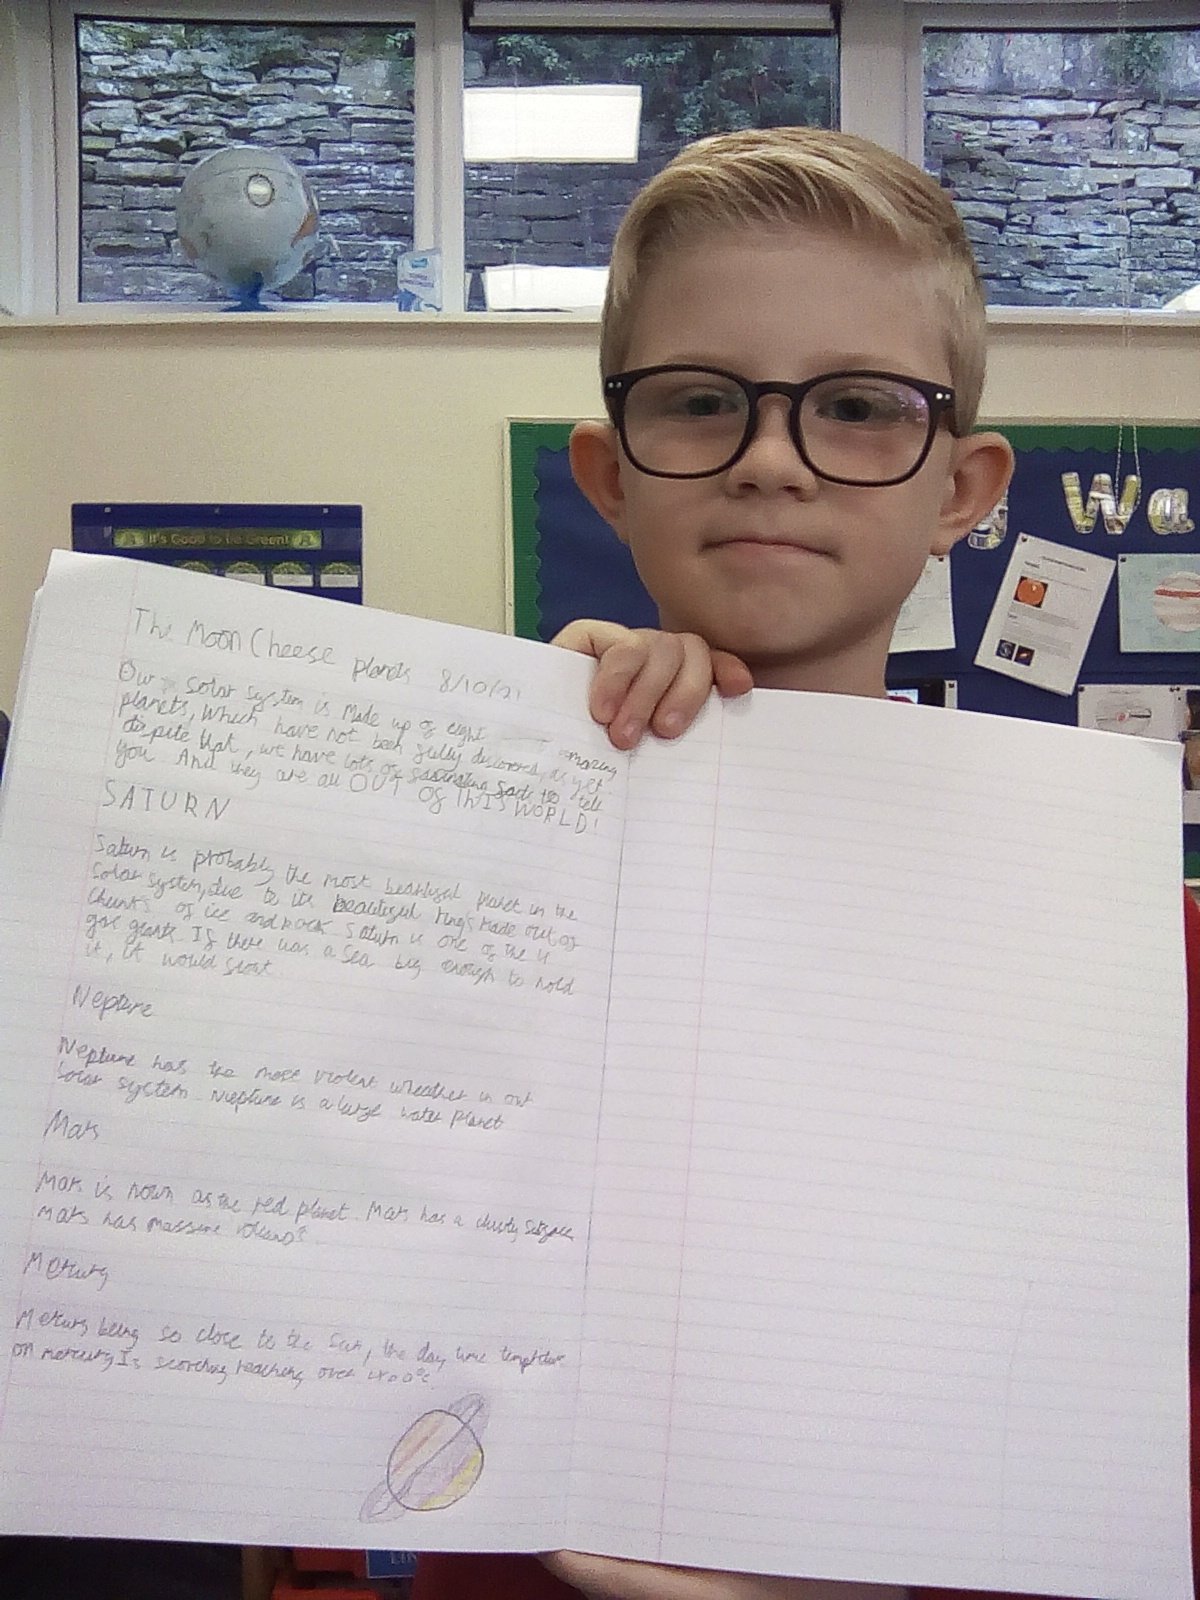 It's Good to be Green!
Wa
The Moon Cheese planets 8/10/21
Our solar system is made up of eight amazing
planets, which have not been fully discovered, as yet.
dispite that, we have lots of to tell
you. And they are all OUT OF THIS WORLD!
SATURN
Saturn is probably the most beautiful planet in the
solar system, due to its beautiful rings made out of
chunks of ice and rock. Saturn is one of the 4
gas giants. If there was a sea big enough to hold
it, it would float
Neptune
Neptune has the most violent wheather in our
solar system. Neptune is a large water planet
Mars
Mars is nown as the red planet. Mars has a dusty
Mars has massive
Mercury
Mercury being so close to the sun, the day time
on mercury Is scorching reaching over